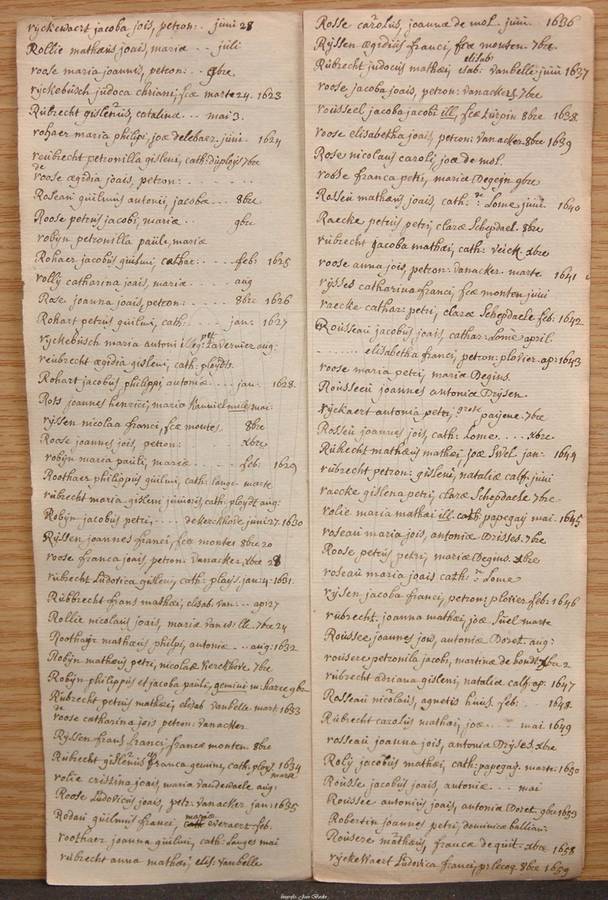 ryckewaert jacoba jois, petron: . juni 28
Rollie mathæus joais, mariæ . . juli
voose maria joannis, petron: . . gbre.
ryckebusch judoca chriani, fcæ marte 24. 1623
Rübrecht gislenus, catalinæ . . . mai 3.
rohaer maria philipi, joæ delebaer. juni. 1624
reubrecht petronilla gisleni, cath: 7bre
de voose ægidia joais, petron: . . . . .
Roseau guilmus antonii, jacobæ . . . 8bre
Roose petrus jacobi, mariæ . . gbre
robÿn petronilla paüli, mariæ
Rohaer jacobus guilmi, cathar: . . . . feb: 1625
rollÿ catharina joais, mariæ . . . . aug
Rose joanna joais, petron: . . . . 8bre 1626
Rohart petrus guilmi, cath: . . . . jan: 1627
ryckebusch maria antoni Lavernier aug:
reubrecht ægidia gisleni, cath: ploÿdts.
Rohart jacobus philippi, antoniæ . . . jan . . 1628.
Ross joannes henrici, maria mile mai:
ryssen nicolaa franci, fcæ montes. 8bre
Roose joannes jois, petron: xbre
robÿn maria pauli, mariæ . . . . . feb: 1629
Roothaer philippus guilmi, cath: Lange marte
rübrecht maria gisleni junioris, cath: ploÿdt aug:
Robÿn jacobus petri, . . . . dekerckhove juni 27. 1630
Rÿssen joannes franci, fcæ monten 8bre 20
voose franca joais, petron: vanacker. xbre 28
rübrecht Ludovica gisleni, cath: ploÿs jan: 14. 1631.
Rübbrecht frans mathæi, elisab. van . . . ap: 27
Rollie nicolaus joais, mariæ ill. 7bre 24
Roothaer mathæus philpi, antoniæ . . . . aug: 1632
Robÿn mathæus petri, nicolaæ Kerckhove. 7bre
Robÿn philippus et jacoba pauli, gemini gbre
Rübrecht petrus mathæi, elisab vanbelle. mart: 1633
de voose catharina jois petron: vanacker.
Rÿssen frans franci, francæ monten. 8bre
Rübrecht gislenus et franca gemini, cath: ploÿs 1634
marte
rolie cristina joais, maria vandewaele aug:
Roose Ludovicus joais, petr: vanacker jan: 1635
Rodau guilmus franci, mariæ everaert feb.
roothaer joanna guilmi, cath: Langes mai
rübrecht anna mathæi, elis: vanbelle
Rosse carolus, joannæ de mol. juni. 1636
Rÿssen ægidius franci, fcæ monten. 7bre.
Rübrecht judocus mathæi, elisab: vanbelle: juni 1637
voose jacoba joais, petron: vanackers. 7bre
rousseel jacoba jacobi ill, fcæ 8bre 1638
voose elisabetha joais, petron: vanacker 8bre 1639
Rose nicolaus caroli, joæ de mol.
voose franca petri, mariæ gbre
Rosseu mathæus joais, cath: de Lome juni. 1640
Raecke petrus petri, claræ Schepdael. 8bre
rübrecht jacoba mathæi, cath: xbre
voose anna jois, petron: vanacker. marte 1641
rÿsses catharina franci, fcæ monten juni
raecke cathar: petri, claræ Schepdaele feb: 1642
Rousseau jacobus joais, cathar: Lome april.
. . . . . . . elisabetha franci, petron: plovier. ap: 1643
voose maria petri, mariæ Degius.
Rousseeu joannes antonia Drÿsen
rÿckaert antonia petri, paijene. 7bre
Rosseu joannes jois, cath: Lome . . . . xbre
Rübrecht mathæus mathæi, joæ jan: 1644
rübrecht petron: gisleni, nataliæ calf. juni
raecke gislena petri, claræ Schepdaele 7bre.
rolie maria mathæi ill. cath: papegaÿ mai. 1645
roseau maria jois, antoniæ Drisses. 7bre
Roose petrus petri, mariæ Degius. xbre
roseau maria joais cath: de Lome
rÿssen jacoba franci, petron: plovier. feb: 1646
rübrecht. joanna mathæi, joæ marte
Roussee joannes jois, antoniæ Doret. aug:
rousere petronila jacobi, martinæ de bondt xbre 2
rübrecht adriana gisleni, nataliæ calf. ap: 1647
Rosseau nicolaus, agnetis huius. feb: 1648.
Rübrecht carolus mathæi, joæ . . . mai. 1649
rosseau joanna jois, antoniæ Drÿses. xbre
Rolÿ jacobus mathæi, cath: papegaÿ. marte: 1650
Rousse jacobus joais, antoniæ . . . mai
Roussee antonius joais, antoniæ Doret. gbre 1653
Robertin joannes petri, dominica balliau:
Rousere mathæus, franca de quit. xbre 1658
rÿckewaert Ludovica franci, pr: lecoq. 8bre 1659